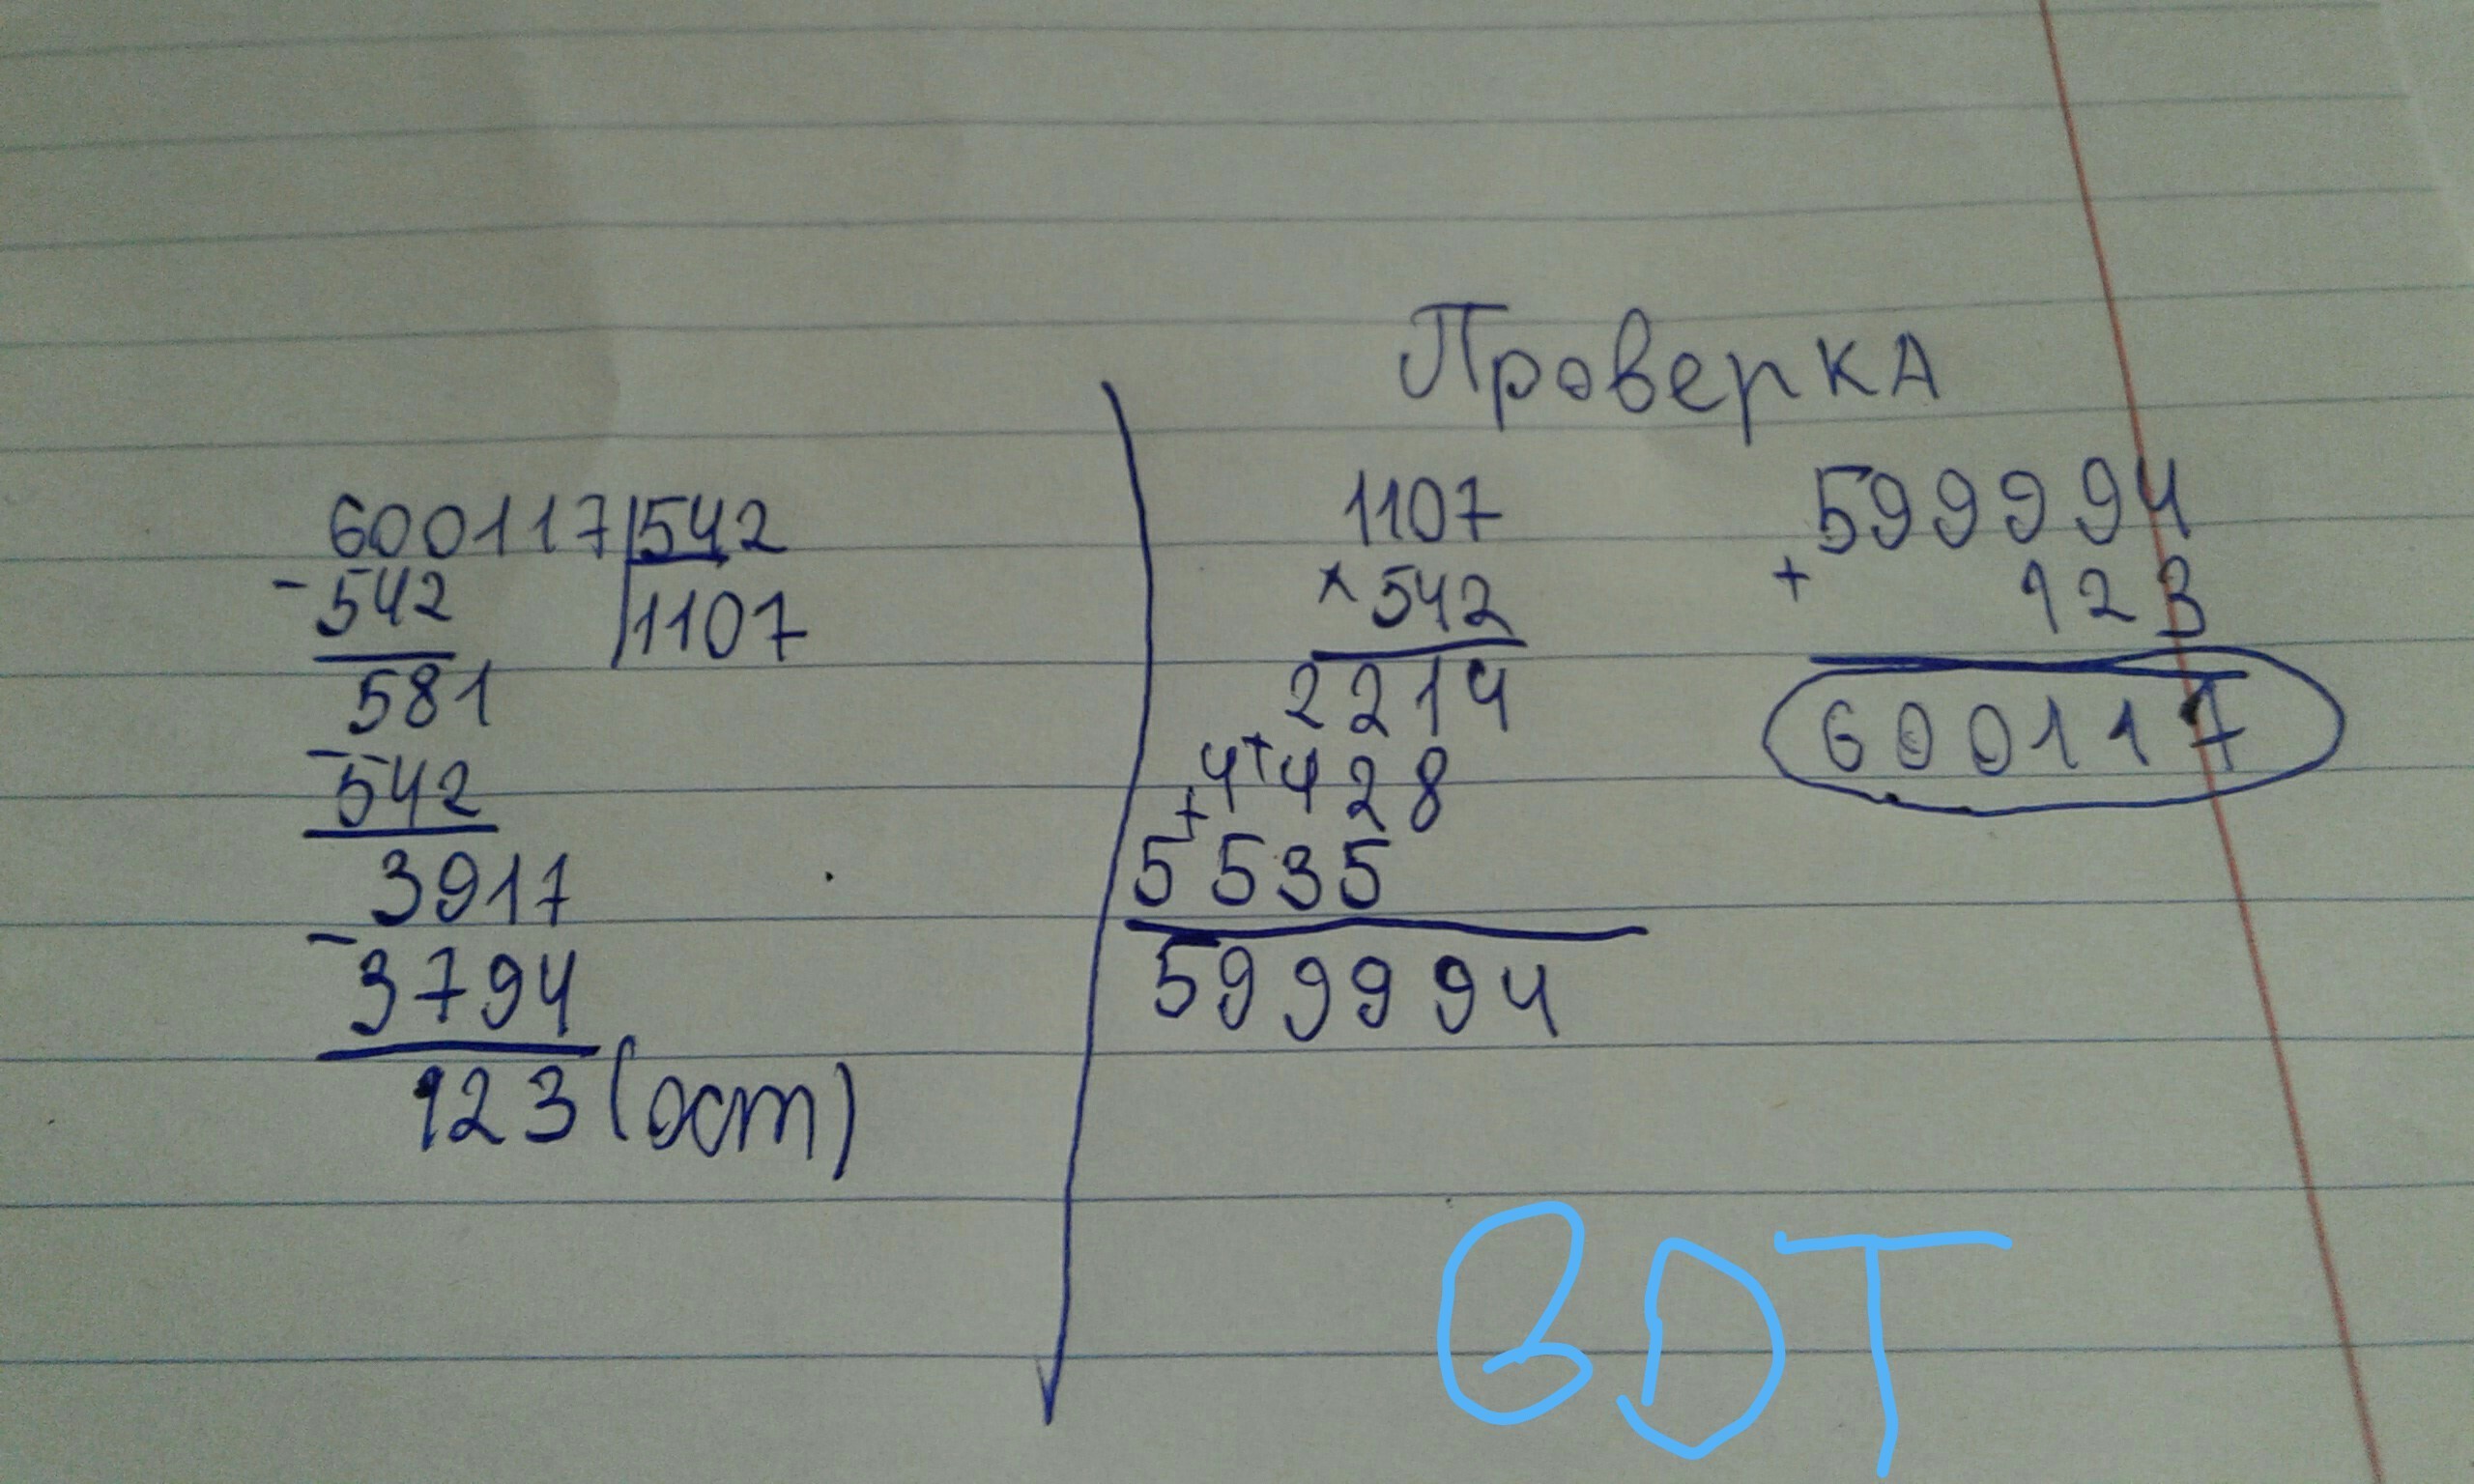 600117|542
-542 |1107
581
-542
3917
-3794
123 (ост)
Проверка
1107
×542
2214
+4428
+5535
599994
599994
+ 123
600117
ВОТ